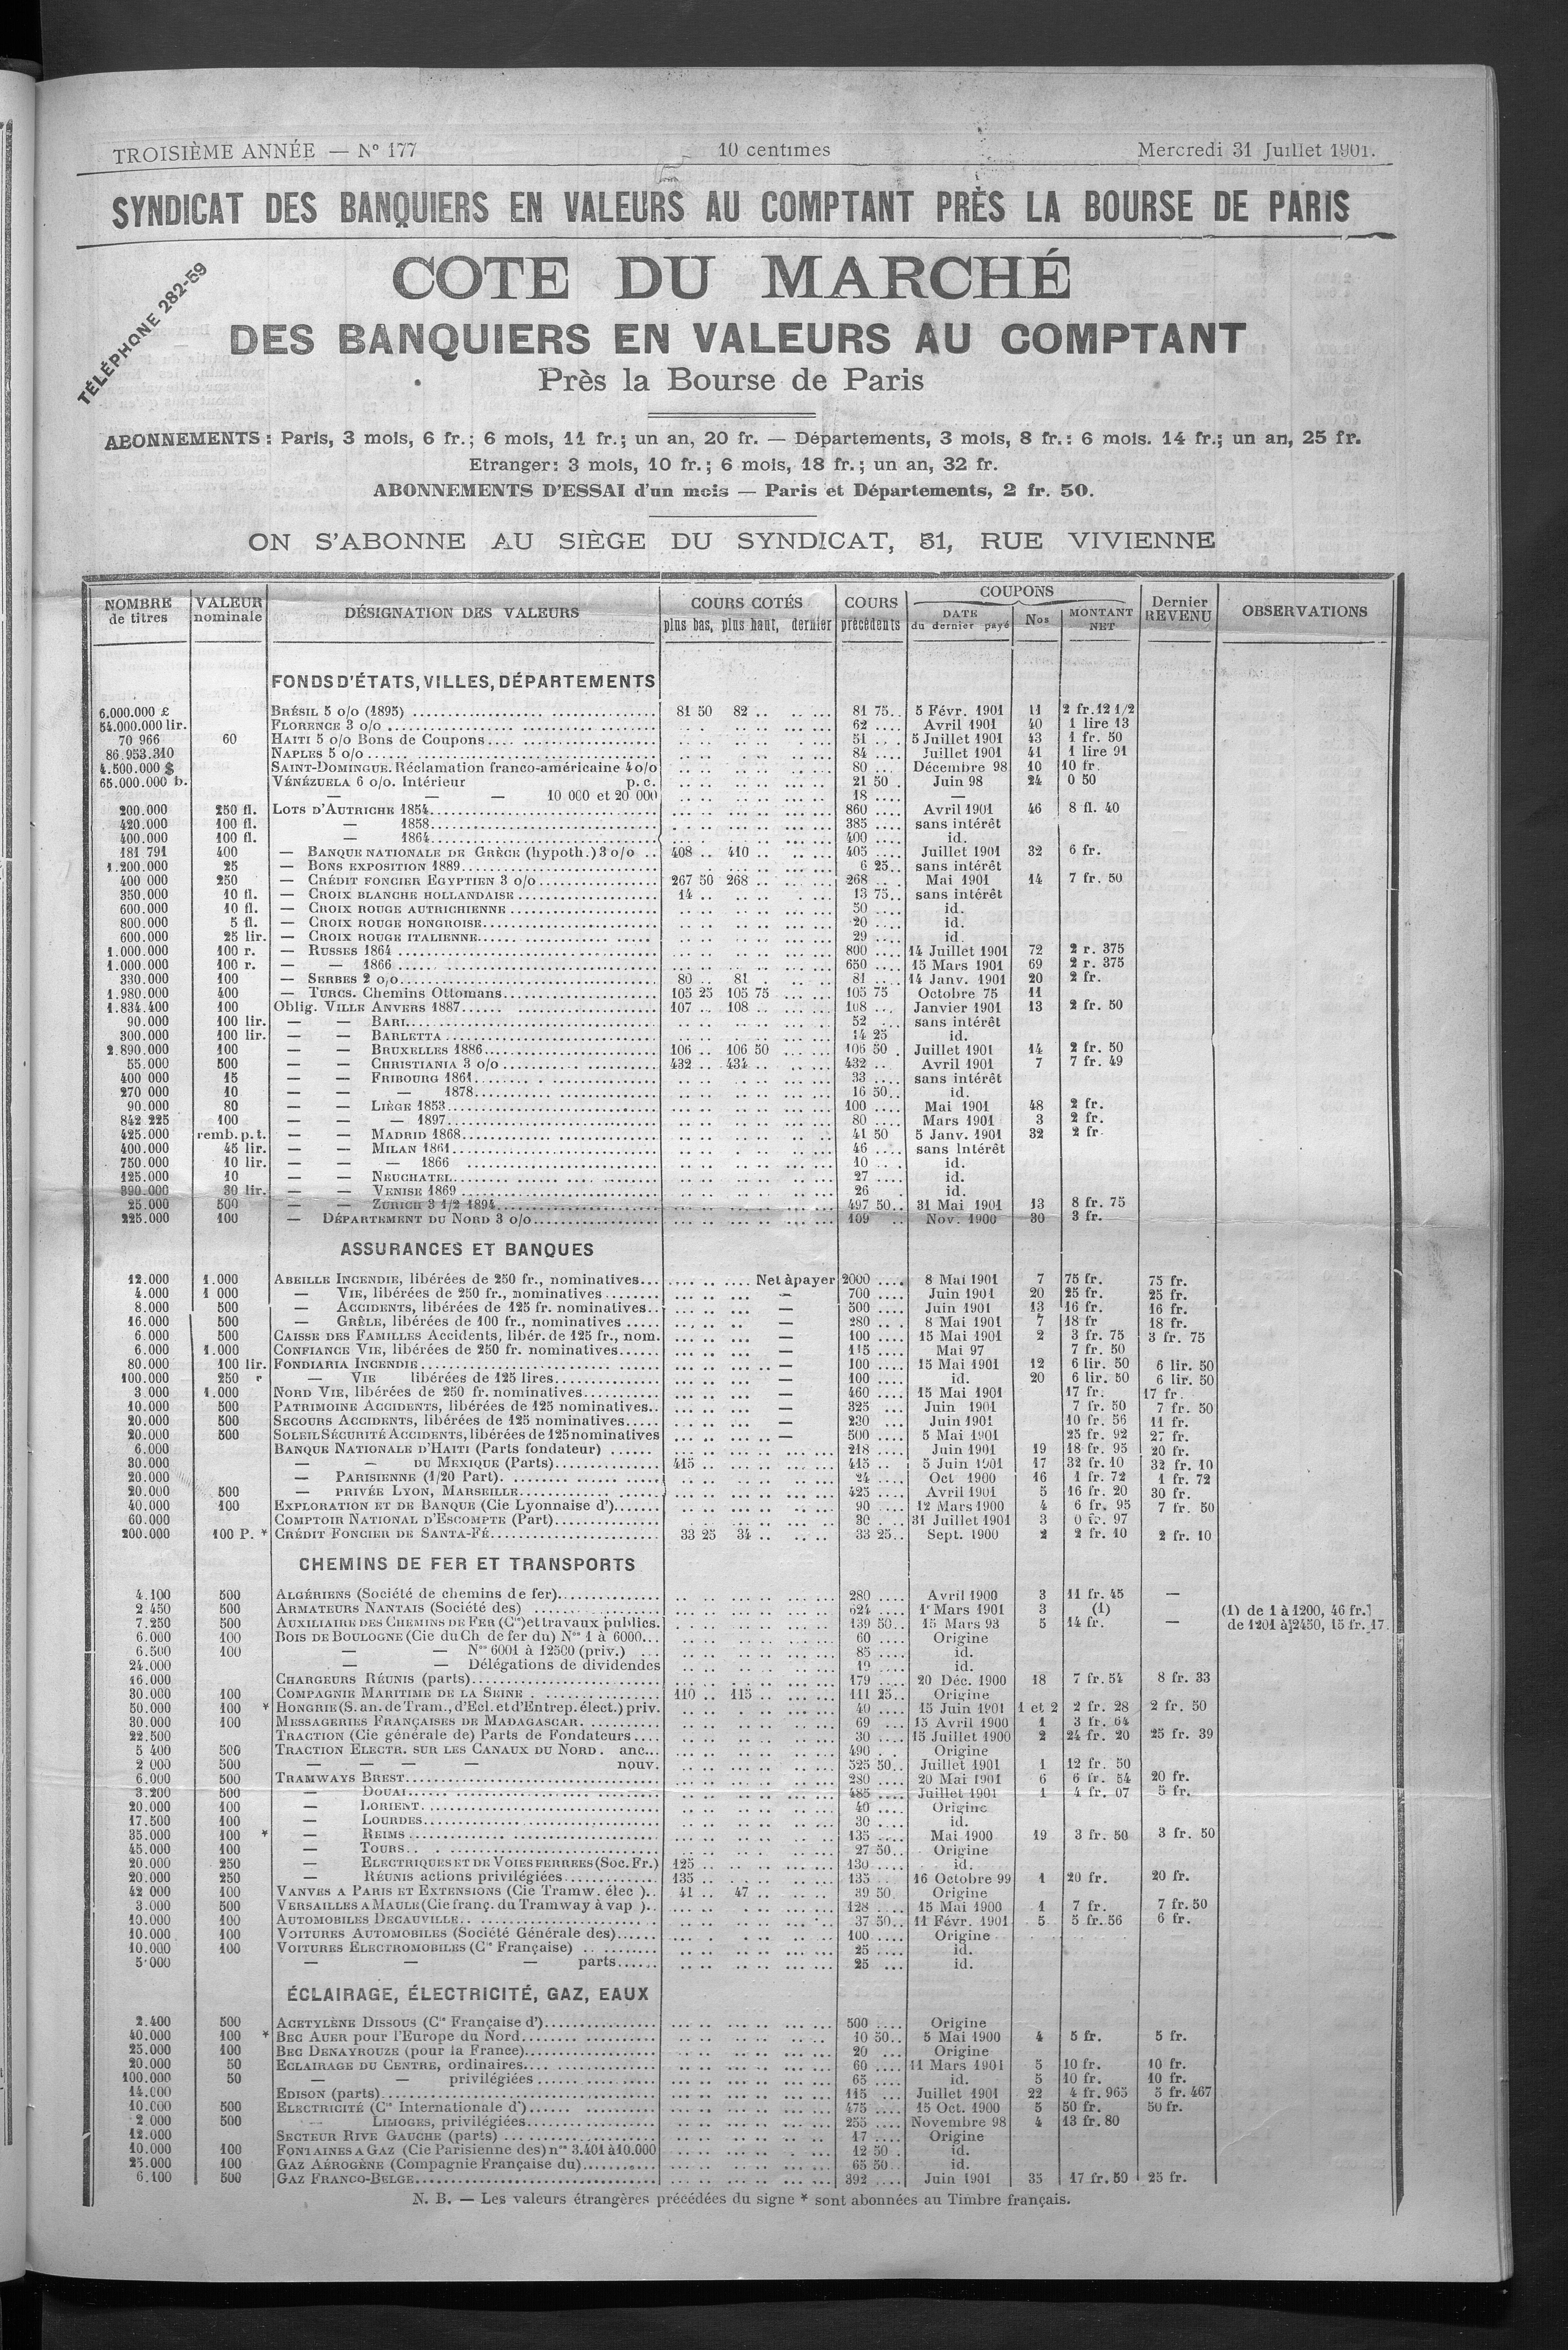 TROISIÈME ANNÉE — Nº 177 10 centimes Mercredi 31 Juillet 1901.
SYNDICAT DES BANQUIERS EN VALEURS AU COMPTANT PRÈS LA BOURSE DE PARIS
TÉLÉPHONE 282-59
COTE DU MARCHÉ
DES BANQUIERS EN VALEURS AU COMPTANT
Près la Bourse de Paris
ABONNEMENTS : Paris, 3 mois, 6 fr.; 6 mois, 11 fr.; un an, 20 fr. — Départements, 3 mois, 8 fr.: 6 mois. 14 fr.; un an, 25 fr.
Etranger: 3 mois, 10 fr.; 6 mois, 18 fr.; un an, 32 fr.
ABONNEMENTS D'ESSAI d'un mois — Paris et Départements, 2 fr. 50.
ON S'ABONNE AU SIÈGE DU SYNDICAT, 51, RUE VIVIENNE
NOMBRE de titres VALEUR nominale DÉSIGNATION DES VALEURS COURS COTÉS plus bas, plus haut, dernier COURS précédents COUPONS DATE du dernier payé Nos MONTANT NET Dernier REVENU OBSERVATIONS
FONDS D'ÉTATS, VILLES, DÉPARTEMENTS
6.000.000 £ BRÉSIL 5 o/o (1895) 81 50 82 .. 81 75 5 Févr. 1901 11 2 fr. 12 1/2
54.000.000 lir. FLORENCE 3 o/o 62 Avril 1901 40 1 lire 13
70 966 60 HAITI 5 o/o Bons de Coupons 51 5 Juillet 1901 43 1 fr. 50
86.953.310 NAPLES 5 o/o 84 Juillet 1901 41 1 lire 91
4.500.000 $ SAINT-DOMINGUE. Réclamation franco-américaine 4 o/o 80 Décembre 98 10 10 fr.
65.000.000 b. VÉNÉZUELA 6 o/o. Intérieur p. c. 21 50 Juin 98 24 0 50
— — — 10 000 et 20 000 18 —
200.000 250 fl. LOTS D'AUTRICHE 1854 860 Avril 1901 46 8 fl. 40
420.000 100 fl. — 1858 385 sans intérêt
400.000 100 fl. — 1864 400 id.
181 791 400 — BANQUE NATIONALE DE GRÈCE (hypoth.) 3 o/o 408 .. 410 .. 405 Juillet 1901 32 6 fr.
1.200.000 25 — BONS EXPOSITION 1889 6 25 sans intérêt
400 000 250 — CRÉDIT FONCIER EGYPTIEN 3 o/o 267 50 268 .. 268 Mai 1901 14 7 fr. 50
350.000 10 fl. — CROIX BLANCHE HOLLANDAISE 14 .. 13 75 sans intérêt
600.000 10 fl. — CROIX ROUGE AUTRICHIENNE 50 id.
800.000 5 fl. — CROIX ROUGE HONGROISE 20 id.
600.000 25 lir. — CROIX ROUGE ITALIENNE 29 id.
1.000.000 100 r. — RUSSES 1864 800 14 Juillet 1901 72 2 r. 375
1.000.000 100 r. — — 1866 650 15 Mars 1901 69 2 r. 375
330.000 100 — SERBES 2 o/o 80 .. 81 . 81 14 Janv. 1901 20 2 fr.
1.980.000 400 — TURCS. Chemins Ottomans 105 25 105 75 105 75 Octobre 75 11
1.834.400 100 Oblig. VILLE ANVERS 1887 107 .. 108 .. 108 Janvier 1901 13 2 fr. 50
90.000 100 lir. — — BARI 52 sans intérêt
300.000 100 lir. — — BARLETTA 14 25 id.
2.890.000 100 — — BRUXELLES 1886 106 .. 106 50 106 50 Juillet 1901 14 2 fr. 50
55.000 500 — — CHRISTIANIA 3 o/o 432 .. 434 .. 432 Avril 1901 7 7 fr. 49
400 000 15 — — FRIBOURG 1861 33 sans intérêt
270 000 10 — — — 1878 16 50 id.
90.000 80 — — LIÈGE 1853 100 Mai 1901 48 2 fr.
842 225 100 — — — 1897 80 Mars 1901 3 2 fr.
425.000 remb. p. t. — — MADRID 1868 41 50 5 Janv. 1901 32 2 fr.
400.000 45 lir. — — MILAN 1861 46 sans Intérêt
750.000 10 lir. — — — 1866 10 id.
125.000 10 — — NEUCHATEL 27 id.
390.000 30 lir. — — VENISE 1869 26 id.
25.000 500 — — ZURICH 3 1/2 1894 497 50 31 Mai 1901 13 8 fr. 75
225.000 100 — DÉPARTEMENT DU NORD 3 o/o 109 Nov. 1900 30 3 fr.
ASSURANCES ET BANQUES
12.000 1.000 ABEILLE INCENDIE, libérées de 250 fr., nominatives Net à payer 2000 8 Mai 1901 7 75 fr. 75 fr.
4.000 1 000 — VIE, libérées de 250 fr., nominatives — 700 Juin 1901 20 25 fr. 25 fr.
8.000 500 — ACCIDENTS, libérées de 125 fr. nominatives — 500 Juin 1901 13 16 fr. 16 fr.
16.000 500 — GRÊLE, libérées de 100 fr., nominatives — 280 8 Mai 1901 7 18 fr 18 fr.
6.000 500 CAISSE DES FAMILLES Accidents, libér. de 125 fr., nom. — 100 15 Mai 1901 2 3 fr. 75 3 fr. 75
6.000 1.000 CONFIANCE VIE, libérées de 250 fr. nominatives — 115 Mai 97 7 fr. 50
80.000 100 lir. FONDIARIA INCENDIE — 100 15 Mai 1901 12 6 lir. 50 6 lir. 50
100.000 250 — VIE libérées de 125 lires — 100 id. 20 6 lir. 50 6 lir. 50
3.000 1.000 NORD VIE, libérées de 250 fr. nominatives — 460 15 Mai 1901 17 fr. 17 fr.
10.000 500 PATRIMOINE ACCIDENTS, libérées de 125 nominatives — 325 Juin 1901 7 fr. 50 7 fr. 50
20.000 500 SECOURS ACCIDENTS, libérées de 125 nominatives — 230 Juin 1901 10 fr. 56 11 fr.
20.000 500 SOLEIL SÉCURITÉ ACCIDENTS, libérées de 125 nominatives — 500 5 Mai 1901 25 fr. 92 27 fr.
6.000 BANQUE NATIONALE D'HAITI (Parts fondateur) 218 Juin 1901 19 18 fr. 95 20 fr.
30.000 — — DU MEXIQUE (Parts) 415 .. 415 5 Juin 1901 17 32 fr. 10 32 fr. 10
20.000 — PARISIENNE (1/20 Part) 24 Oct 1900 16 1 fr. 72 1 fr. 72
20.000 500 — PRIVÉE LYON, MARSEILLE 425 Avril 1901 5 16 fr. 20 30 fr.
40.000 100 EXPLORATION ET DE BANQUE (Cie Lyonnaise d') 90 12 Mars 1900 4 6 fr. 95 7 fr. 50
60.000 COMPTOIR NATIONAL D'ESCOMPTE (Part) 30 31 Juillet 1901 3 0 fr. 97
200.000 100 P. * CRÉDIT FONCIER DE SANTA-FÉ 33 25 34 .. 33 25 Sept. 1900 2 2 fr. 10 2 fr. 10
CHEMINS DE FER ET TRANSPORTS
4.100 500 ALGÉRIENS (Société de chemins de fer) 280 Avril 1900 3 11 fr. 45 —
2.450 500 ARMATEURS NANTAIS (Société des) 624 1r Mars 1901 3 (1) (1) de 1 à 1200, 46 fr.
7.250 500 AUXILIAIRE DES CHEMINS DE FER (Cie) et travaux publics. 139 50 15 Mars 93 5 14 fr. — de 1201 à 2450, 15 fr. 17.
6.000 100 BOIS DE BOULOGNE (Cie du Ch de fer du) Nos 1 à 6000 60 Origine
6.500 100 — — Nos 6001 à 12500 (priv.) 85 id.
24.000 — — Délégations de dividendes 19 id.
16.000 CHARGEURS RÉUNIS (parts) 179 20 Déc. 1900 18 7 fr. 54 8 fr. 33
30.000 100 COMPAGNIE MARITIME DE LA SEINE 110 .. 115 .. 111 25 Origine
50.000 100 * HONGRIE (S. an. de Tram., d'Ecl. et d'Entrep. élect.) priv. 40 15 Juin 1901 1 et 2 2 fr. 28 2 fr. 50
30.000 100 MESSAGERIES FRANÇAISES DE MADAGASCAR 69 15 Avril 1900 1 3 fr. 64
22.500 TRACTION (Cie générale de) Parts de Fondateurs 30 15 Juillet 1900 2 24 fr. 20 25 fr. 39
5 400 500 TRACTION ELECTR. SUR LES CANAUX DU NORD . anc. 490 Origine
2 000 500 — — — — nouv. 525 50 Juillet 1901 1 12 fr. 50
6.000 500 TRAMWAYS BREST 280 20 Mai 1901 6 6 fr. 54 20 fr.
3.200 500 — DOUAI 485 Juillet 1901 1 4 fr. 07 5 fr.
20.000 100 — LORIENT 40 Origine
17.500 100 — LOURDES 30 id.
35.000 100 * — REIMS 135 Mai 1900 19 3 fr. 50 3 fr. 50
45.000 100 — TOURS 27 50 Origine
20.000 250 — ELECTRIQUES ET DE VOIES FERREES (Soc. Fr.) 125 .. 130 id.
20.000 250 — RÉUNIS actions privilégiées 135 .. 135 16 Octobre 99 1 20 fr. 20 fr.
42 000 100 VANVES A PARIS ET EXTENSIONS (Cie Tramw. élec ) 41 .. 47 .. 39 50 Origine
3.000 500 VERSAILLES A MAULE (Cie franç. du Tramway à vap ) 128 15 Mai 1900 1 7 fr. 7 fr. 50
10.000 100 AUTOMOBILES DECAUVILLE 37 50 11 Févr. 1901 5 5 fr. 56 6 fr.
10.000 100 VOITURES AUTOMOBILES (Société Générale des) 100 Origine
10.000 100 VOITURES ELECTROMOBILES (Cie Française) 25 id.
5.000 — — — parts 25 id.
ÉCLAIRAGE, ÉLECTRICITÉ, GAZ, EAUX
2.400 500 ACETYLÈNE DISSOUS (Cie Française d') 500 Origine
40.000 100 * BEC AUER pour l'Europe du Nord 10 50 5 Mai 1900 4 5 fr. 5 fr.
25.000 100 BEC DENAYROUZE (pour la France) 20 Origine
20.000 50 ECLAIRAGE DU CENTRE, ordinaires 60 11 Mars 1901 5 10 fr. 10 fr.
100.000 50 — — privilégiées 65 id. 5 10 fr. 10 fr.
14.000 EDISON (parts) 115 Juillet 1901 22 4 fr. 965 5 fr. 467
10.000 500 ELECTRICITÉ (Cie Internationale d') 475 15 Oct. 1900 5 50 fr. 50 fr.
2.000 500 — LIMOGES, privilégiées 255 Novembre 98 4 13 fr. 80
12.000 SECTEUR RIVE GAUCHE (parts) 17 Origine
10.000 100 FONTAINES A GAZ (Cie Parisienne des) nos 3.401 à 10.000 12 50 id.
25.000 100 GAZ AÉROGÈNE (Compagnie Française du) 65 50 id.
6.100 500 GAZ FRANCO-BELGE 392 Juin 1901 35 17 fr. 50 25 fr.
N. B. — Les valeurs étrangères précédées du signe * sont abonnées au Timbre français.